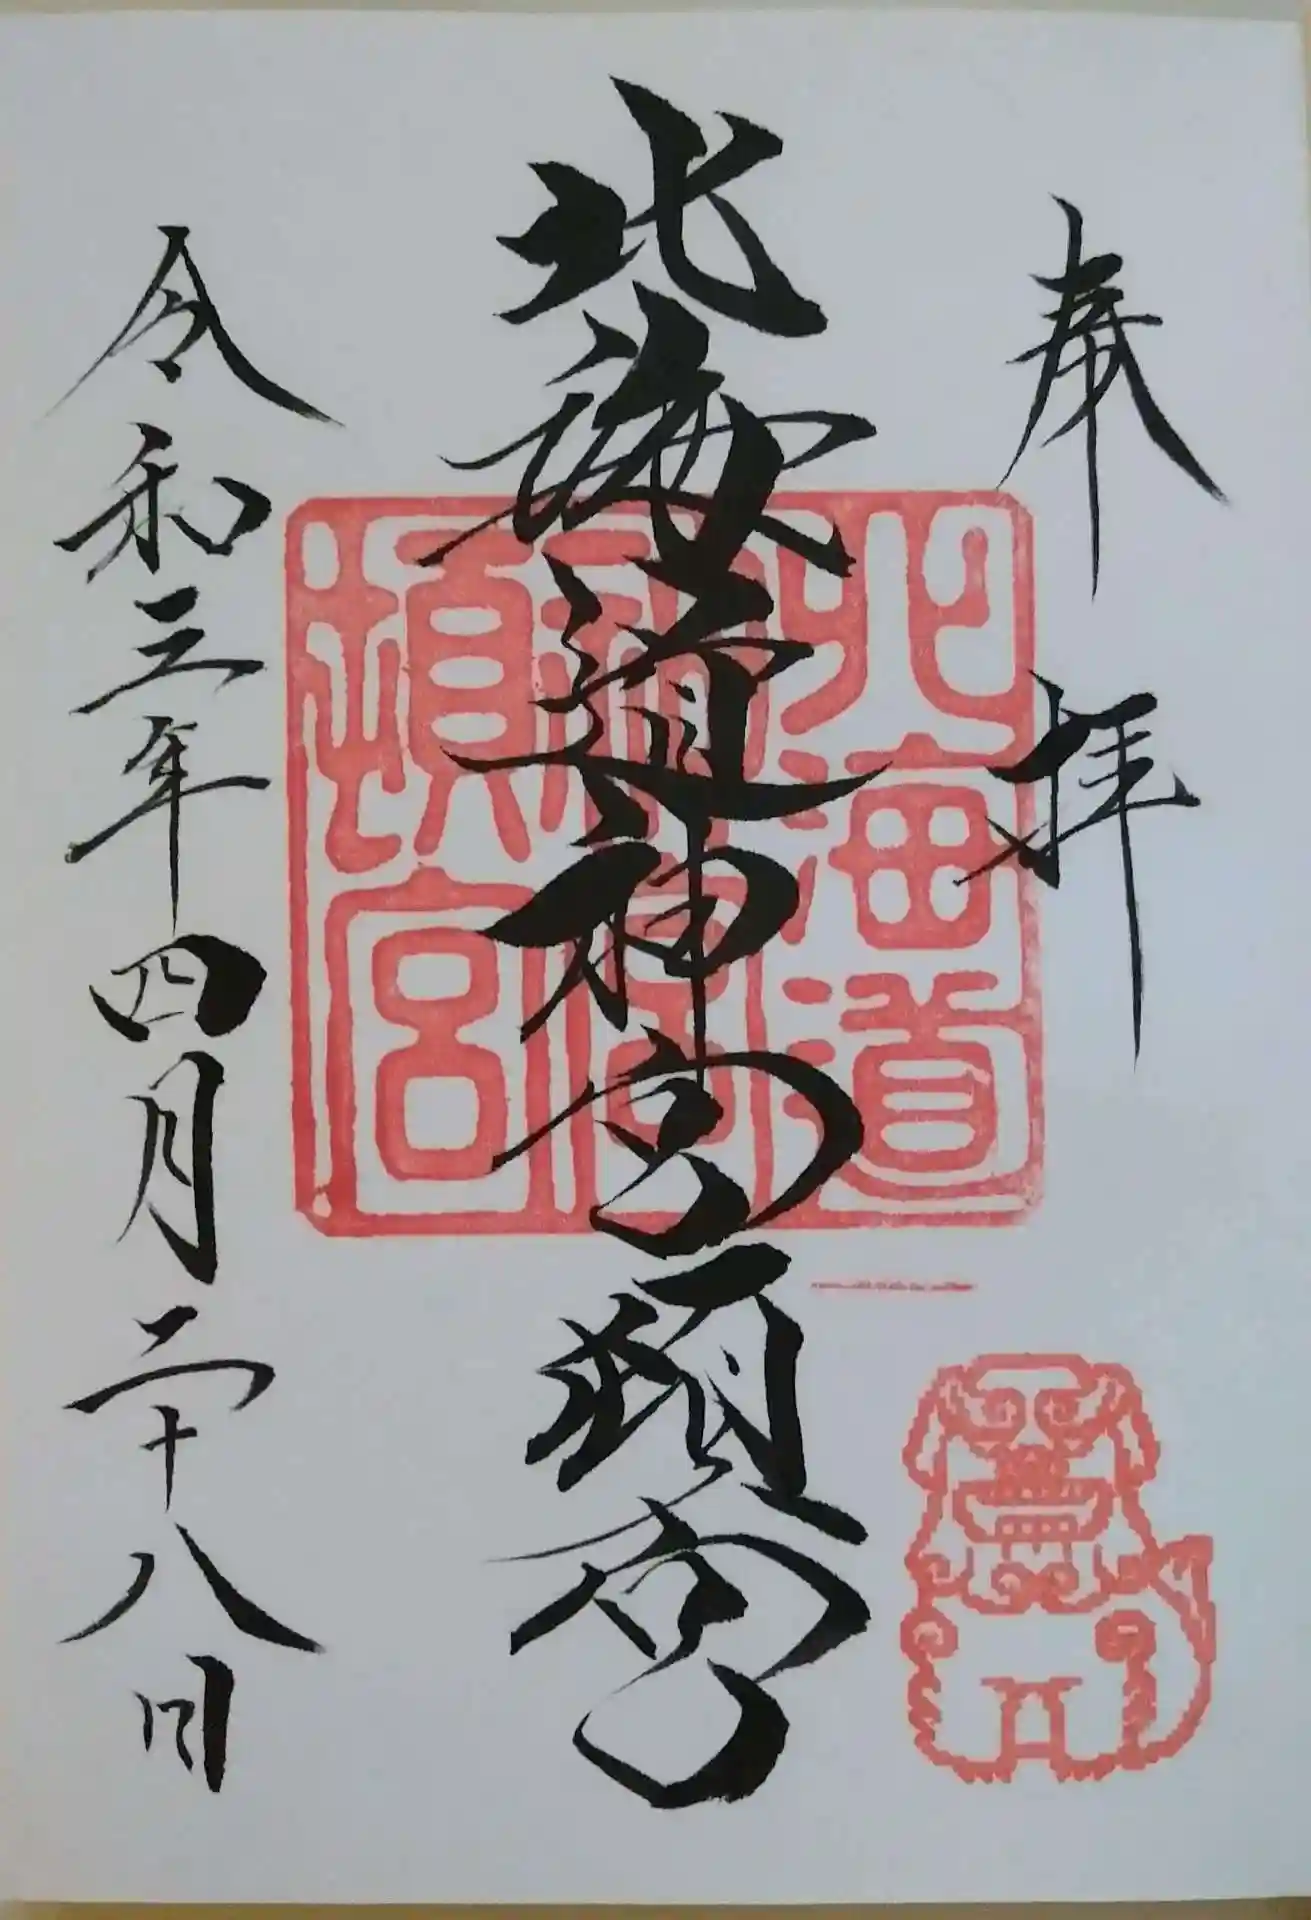 奉拝
北海道神宮頓宮
北海道
神宮
頓宮
令和三年四月二十八日